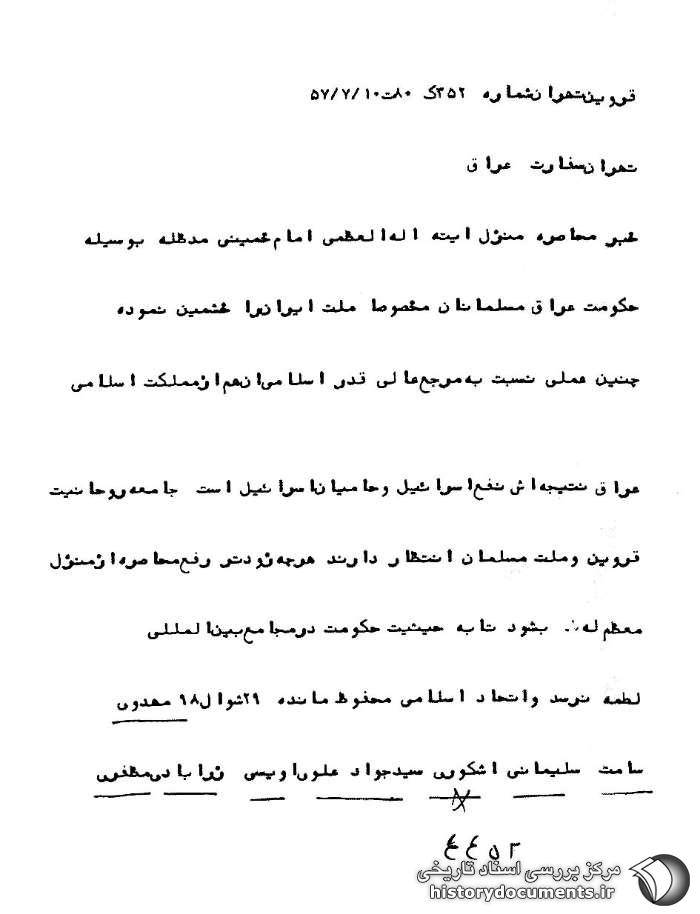 قزوین تهران شماره ۳۵۲ک ۸۰ت ۵۷/۷/۱۰
تهران سفارت عراق
خبر محاصره منزل ایته اله العظمی امام خمینی مدظله بوسیله
حکومت عراق مسلمانان مخصوصا ملت ایران را خشمین نموده
چنین عملی نسبت به مرجع عالی قدر اسلامی ان هم از مملکت اسلامی
عراق نتیجه اش نفع اسرائیل و حامیان اسرائیل است جامعه روحانیت
قزوین و ملت مسلمان انتظار دارند هرچه زودتر رفع محاصره از منزل
معظم له بشود تا به حیثیت حکومت در مجامع بین المللی
لطمه نرسد و اتحاد اسلامی محفوظ مانده ۲۹ شوال ۹۸ مهدوی
سامت سلیمانی اشکوری سیدجواد علوی اویسی زرابادی مظفری
مرکز بررسی اسناد تاریخی
historydocuments.ir